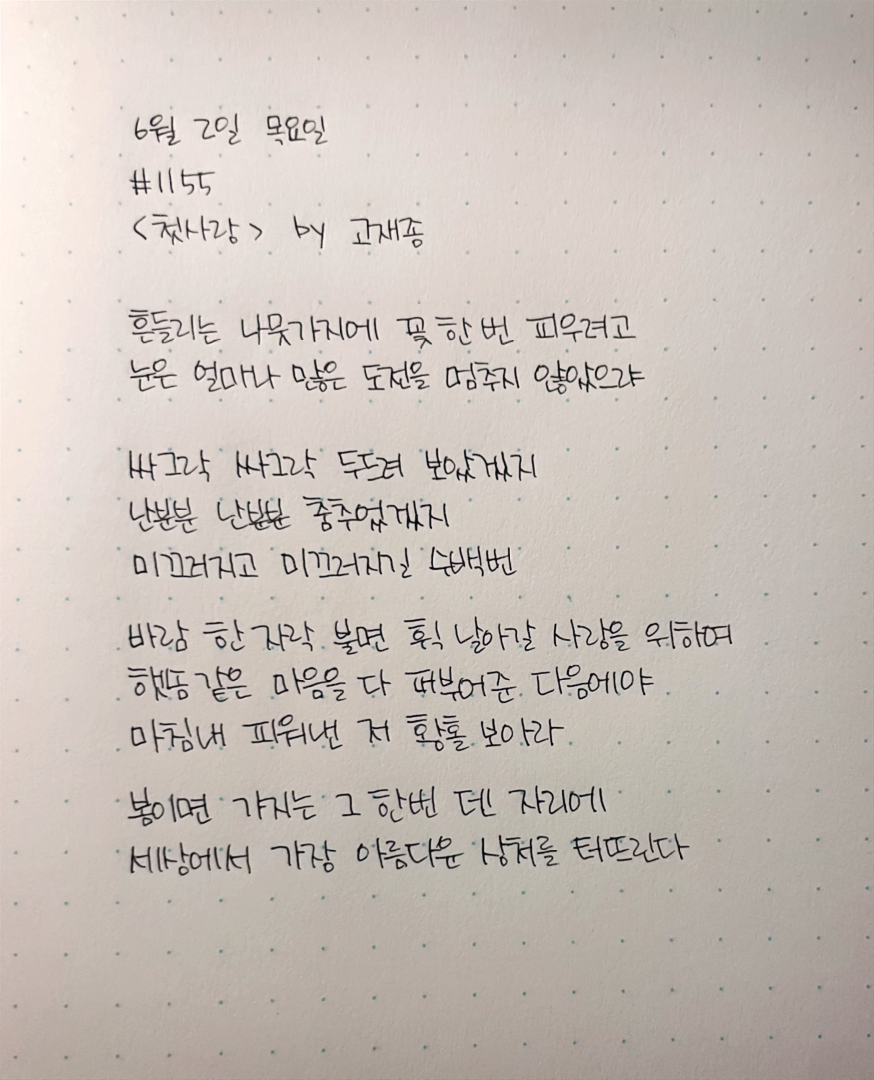 6월 2일 목요일
#1155
<첫사랑> by 고재종
흔들리는 나뭇가지에 꽃 한 번 피우려고
눈은 얼마나 많은 도전을 멈추지 않았으랴
싸그락 싸그락 두드려 보았겠지
난분분 난분분 춤추었겠지
미끄러지고 미끄러지길 수백번
바람 한 자락 불면 휙 날아갈 사랑을 위하여
햇솜 같은 마음을 다 퍼부어준 다음에야
마침내 피워낸 저 황홀 보아라
봄이면 가지는 그 한번 덴 자리에
세상에서 가장 아름다운 상처를 터뜨린다